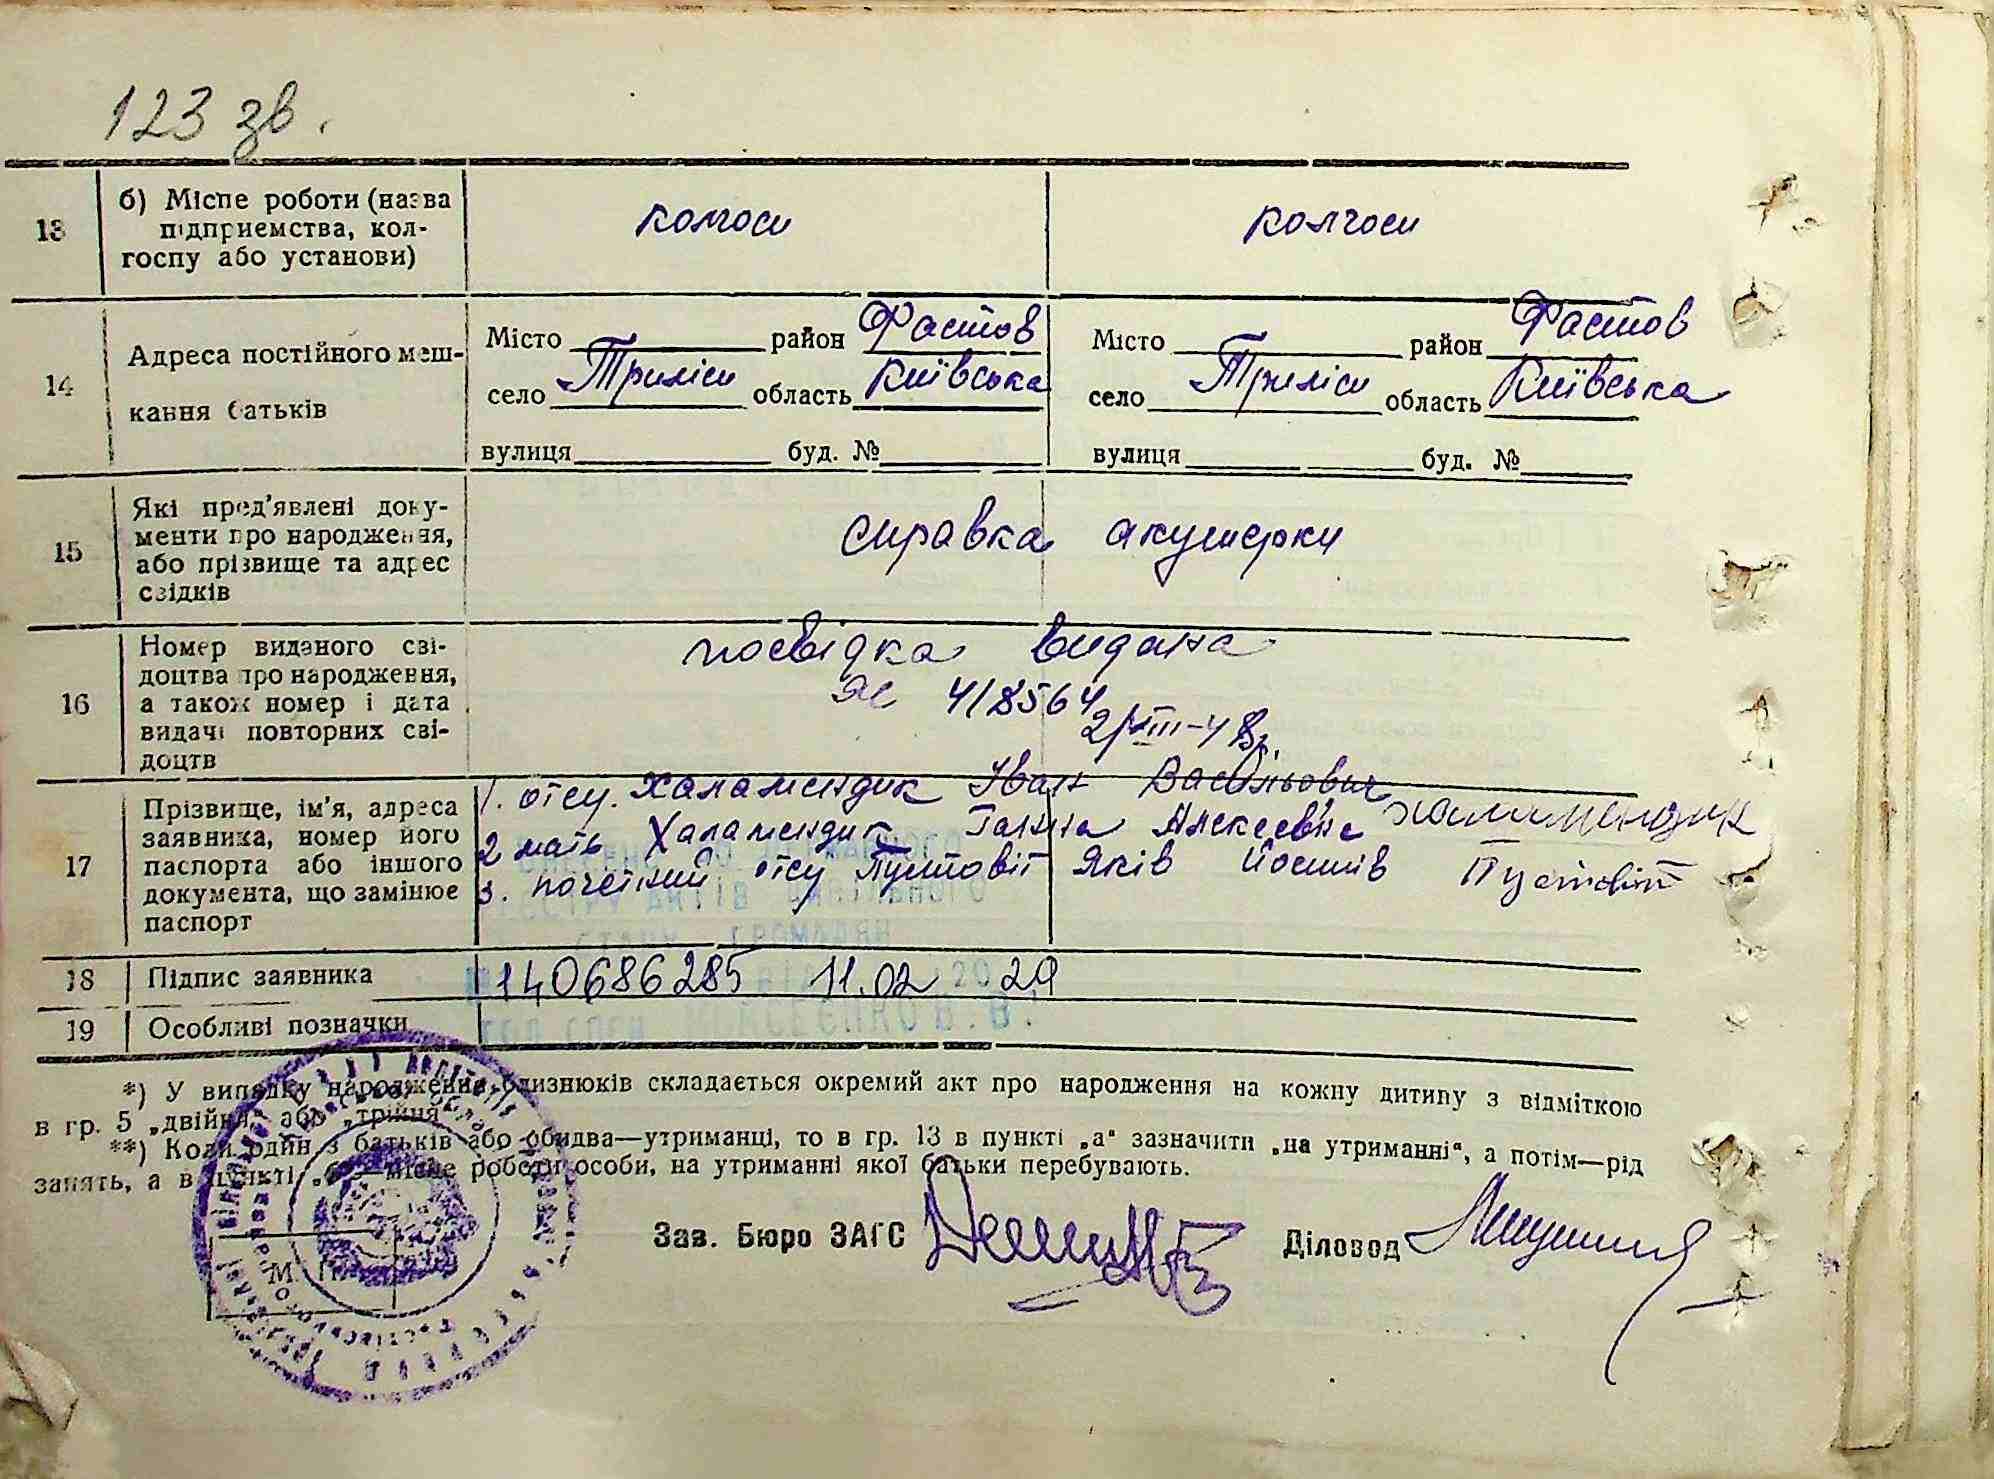 123 зв.
13
б) Місце роботи (назва
підприємства, кол-
госпу або установи)
колгосп
колгосп
14
Адреса постійного меш-
кання батьків
Місто район Фастов
село Триліси область Київська
вулиця буд. №
Місто район Фастов
село Триліси область Київська
вулиця буд. №
15
Які пред'явлені доку-
менти про народження,
або прізвище та адрес
свідків
справка акушерки
16
Номер виданого сві-
доцтва про народження,
а також номер і дата
видачі повторних сві-
доцтв
посвідка видана
418564
17
Прізвище, ім'я, адреса
заявника, номер його
паспорта або іншого
документа, що замінює
паспорт
1. отец. Халамендик Іван Васільович
2 мать Халамендик Ганна Алексеевна Халамендик
3. почетний отец Пустовіт Яків Пустовіт
18
Підпис заявника
140686285 11.02 2020
19
Особливі позначки
*) У випадку народження близнюків складається окремий акт про народження на кожну дитину з відміткою
в гр. 5 „двійня“ або „трійня“
**) Коли один з батьків або обидва—утриманці, то в гр. 13 в пункті „а“ зазначити „на утриманні“, а потім—рід
занять, а в пункті „б“ місце роботи особи, на утриманні якої батьки перебувають.
Зав. Бюро ЗАГС
Діловод
М. П.